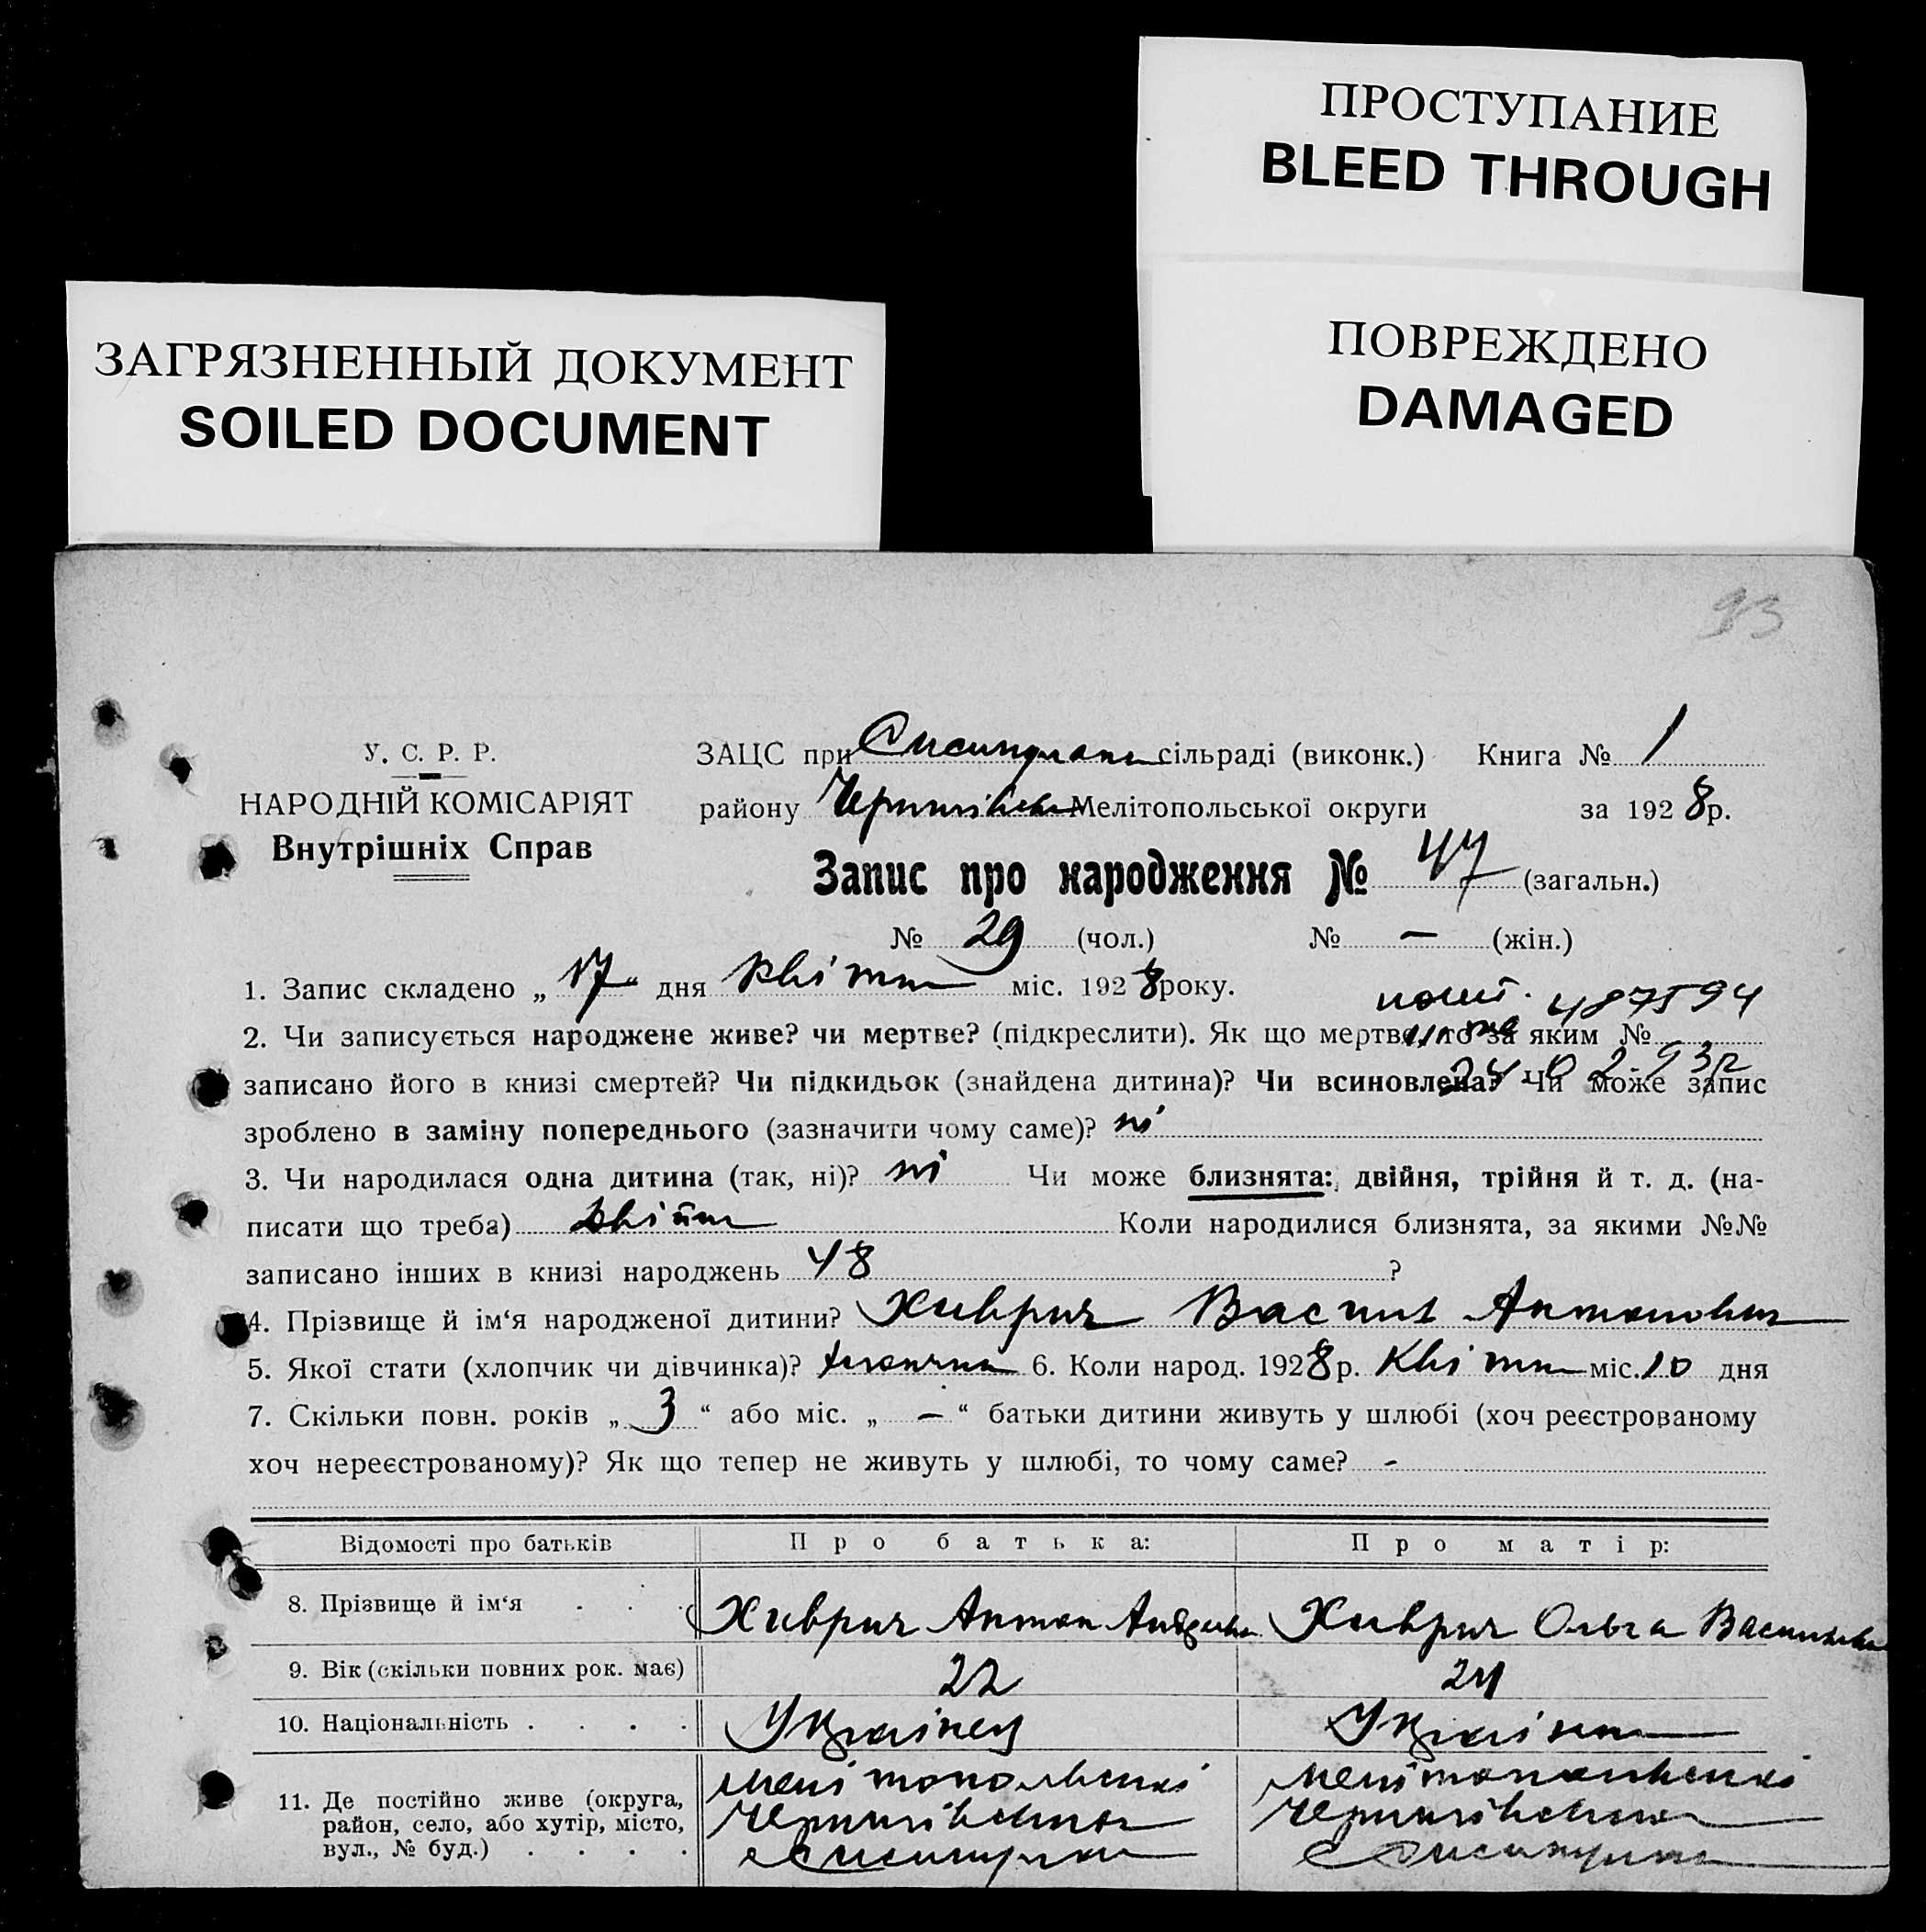 ПРОСТУПАНИЕ
BLEED THROUGH
ПОВРЕЖДЕНО
DAMAGED
ЗАГРЯЗНЕННЫЙ ДОКУМЕНТ
SOILED DOCUMENT
93
У. С. Р. Р.
НАРОДНІЙ КОМІСАРІЯТ
Внутрішніх Справ
ЗАЦС при сільраді (виконк.) Книга № 1
району Чернигівськ Мелітопольської округи за 1928 р.
Запис про народження № 47 (загальн.)
№ 29 (чол.) № — (жін.)
1. Запис складено „ 17 “ дня Квітня міс. 1928 року.
487594
2. Чи записується народжене живе? чи мертве? (підкреслити). Як що мертве, то за яким №
записано його в книзі смертей? Чи підкидьок (знайдена дитина)? Чи всиновлена? Чи може запис
зроблено в заміну попереднього (зазначити чому саме)? ні
3. Чи народилася одна дитина (так, ні)? ні Чи може близнята: двійня, трійня й т. д. (на-
писати що треба) двійня Коли народилися близнята, за якими №№
записано інших в книзі народжень 48 ?
4. Прізвище й ім‘я народженої дитини? Хиврич Василь Антонович
5. Якої стати (хлопчик чи дівчинка)? хлопчик 6. Коли народ. 1928 р. Квітня міс. 10 дня
7. Скільки повн. років „ 3 “ або міс. „ — “ батьки дитини живуть у шлюбі (хоч реєстрованому
хоч нереєстрованому)? Як що тепер не живуть у шлюбі, то чому саме? -
Відомості про батьків Про батька: Про матір:
8. Прізвище й ім‘я Хиврич Антон Андреєв Хиврич Ольга Васильевна
9. Вік (скільки повних рок. має) 22 24
10. Національність Українец Українка
11. Де постійно живе (округа,
район, село, або хутір, місто,
вул., № буд.)
Мелітопольскі
Чернигівська
Мелітопольскі
Чернигівська